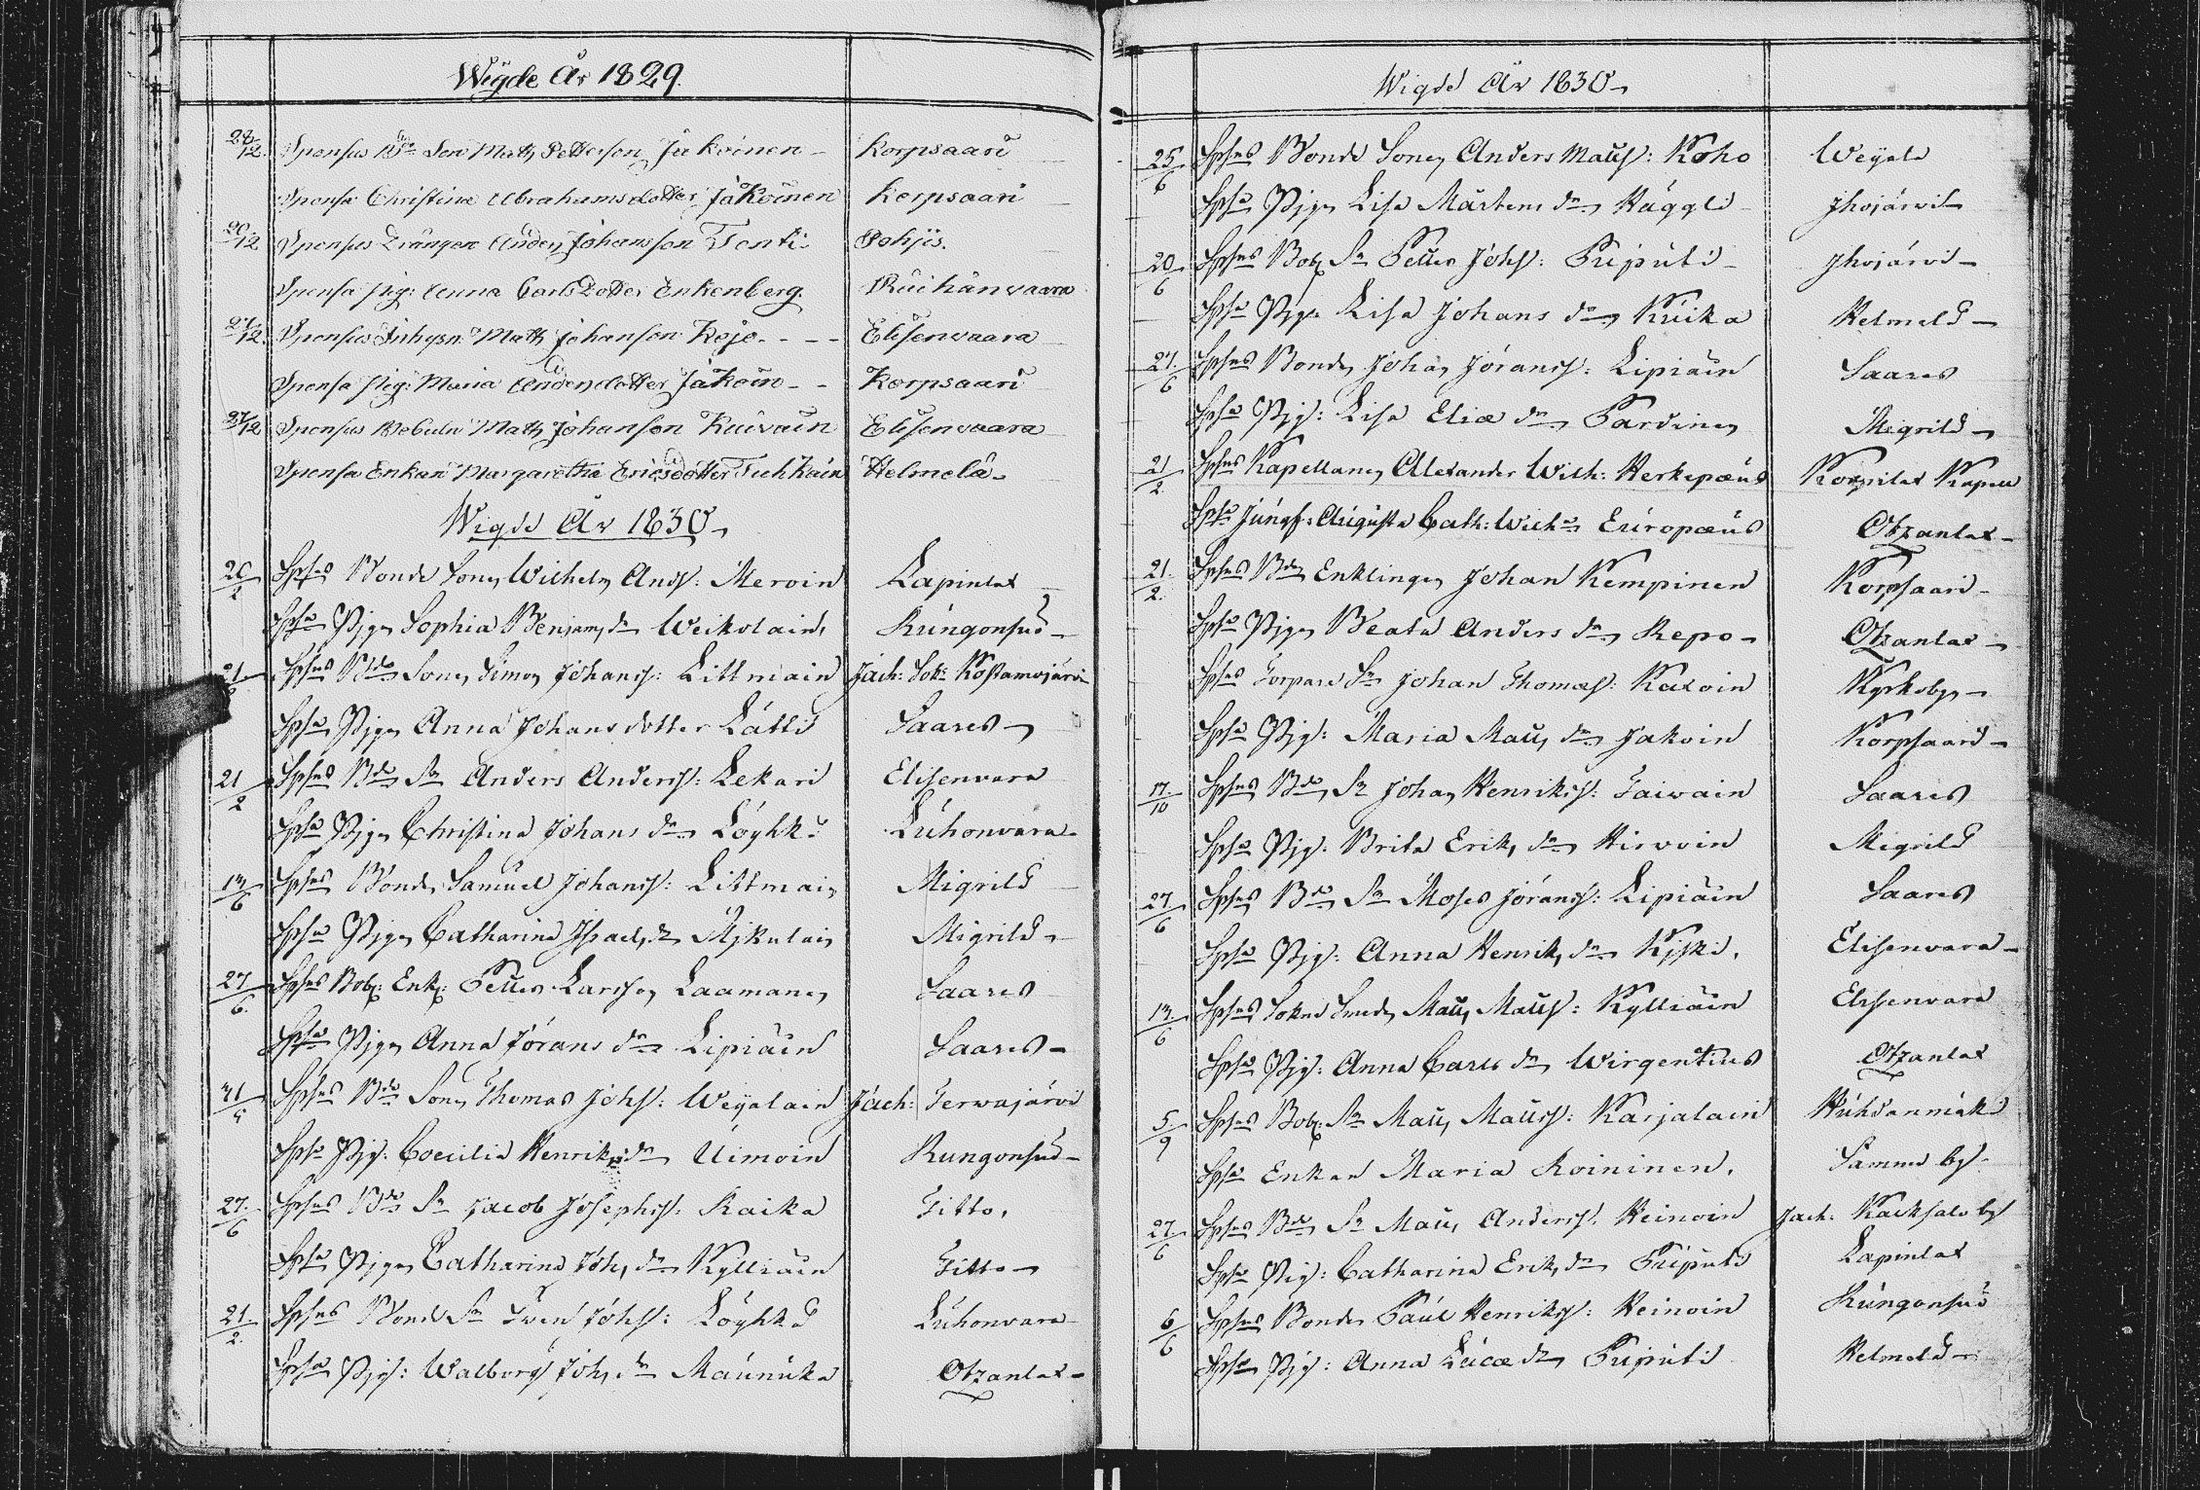 Wigde År 1829.
28/12. Sponsus B:de Son Matts Petterson Jakoinen Korpsaari
Sponsa Christina Abrahamsdotter Jakoinen Korpsaari
Sponsus Drängen Anders Johansson Tenti Pohjis.
Sponsa Pig: Anna Carlsdotter Enkenberg. Rauhanvaara
Sponsus Inhysn Matts Johanson Kojo Elisenvaara
Sponsa Pig: Maria Andersdotter Jakoin Korpsaari
27/12 Sponsus Matts Johanson Kuivain Elisenvaara
Sponsa Enkan Margaretha Ericsdotter Tuhkain Helmelä
Wigde År 1830
Spsus Bonde Sonen Wilhelm Ands: Meroin Lapinlax
Spsa Pigan Sophia Benjams dr Weikolain Kungonsuo
Spsus Bde Sonen Simon Johans: Littmain Jach: Sok: Kostamojärvi
Spsa Pigan Anna Johansdotter Lätti Saares
21/2 Spsus Bde Sn Anders Anders: Lekari Elisenvara
Spsa Pigan Christina Johans dr Löyhkö Luhonvara
13/6 Spsus Bonden Samuel Johans: Littmain Migrilä
Spsa Pigan Catharina Israels dr Äjkulain Migrilä
27/6. Spsus Bob: Enkl: Petter Larsson Laamanen Saares
Spsa Pigan Anna Jörans dr Lipiäin Saares
Spsus Bde Sonen Thomas Johs: Weijalain Jach: Terwajärvi
Spsa Pig: Coecilia Henriks dr Uimoin Kungonsuo
27/6 Spsus Bde Sn Jacob Josephs: Kaika Titto,
Spsa Pigan Catharina Joh, dr Kylliäin Titto
21/2. Spsus Bonde Sn Sven Johs: Löyhkö Luhonvara
Spsa Pig: Walborg Joh, dr Maunuka Otzanlax
Wigde År 1830
25/6 Spsus Bonde Sonen Anders Matts: Koho Weijala
Spsa Pigan Lisa Mårtens dr Häggli Ihojärvi
20/6 Spsus Bob: Sn Petter Johs: Puputi Ihojärvi
Spsa Pigan Lisa Johans dr Kuika Helmelä
27/6 Spsus Bonden Johan Jörans: Lipiäin Saares
Spsa Pig: Lisa Eliæ dr Pardinen Migrilä
21/2. Spsus Kapellanen Alexander Wilh: Herkepæus Korpilax Kapell
Spsa Jungf: Augusta Cath: Wilh:a Europæus Otzanlax
21/2. Spsus Bde Enklingen Johan Kempinen Korpsaari
Spsa Pigan Beata Anders dr Repo Otzanlax
Spsus Torpare Sn Johan Thomæs: Katoin Kyrkoby
Spsa Pig: Maria Matts dr Jakoin Korpsaari
17/10 Spsus Bde Sn Johan Henriks: Taiwain Saares
Spsa Pig: Brita Erik, dr Hirvoin Migrilä
27/6 Spsus Bde Sn Moses Jörans: Lipiäin Saares
Spsa Pig: Anna Henrik, dr Kiiski. Elisenvara
13/6 Spsus Sokne Smeden Matts Matts: Kylliäin Elisenvara
Spsa Pig: Anna Carls dr Wirgentius Otzanlax
5/9 Spsus Bob: Sn Matts Matts: Karjalain Huhdanmäki
Spsa Enkan Maria Roininen. Samma by
27/6 Spsus Bde Sn Matts Anders: Heinoin Jach: Kacksalo by
Spsa Pig: Catharina Erik, dr Puputi Lapinlax
6/6 Spsus Bonden Paul Henriks: Heinoin Kungonsuo
Spsa Pig: Anna Lucæ dr Puputi Helmelä